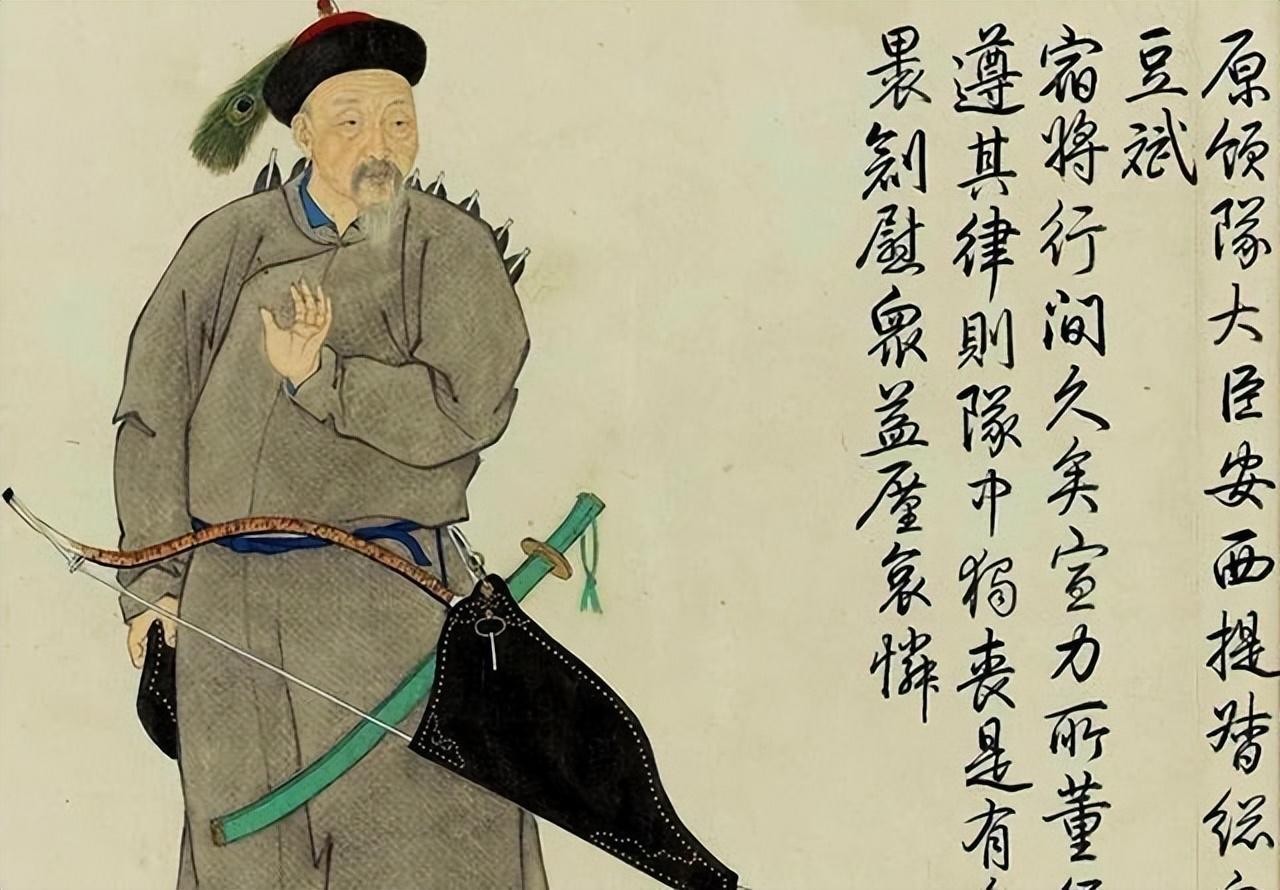 原領隊大臣安西提督總
豆斌
宿將行間久矣宣力所董
遵其律則隊中獨喪是有
裹創慰衆益厪哀憐